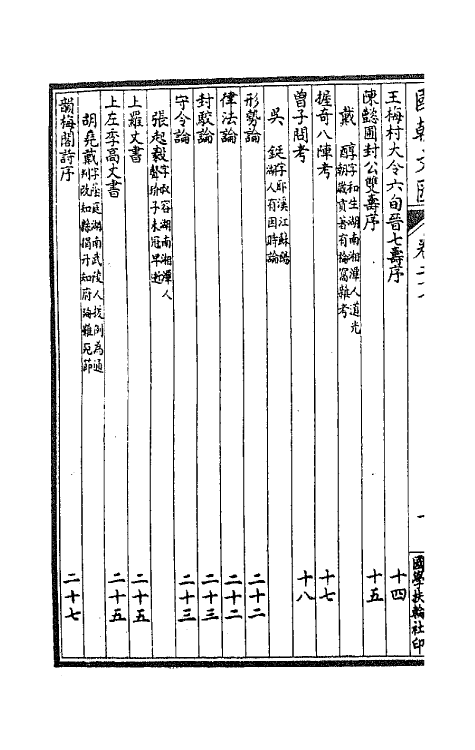 國朝文匯 卷二十八 一 國學扶輪社印
王梅村大令六旬晉七壽序 十四
陳懿圃封公雙壽序 十五
戴 醇 字和生湖南湘潭人道光朝歲貢著有輪寓雜考
握奇八陣考 十七
曾子問考 十八
吳 鋌 字耶溪江蘇陽湖人有因時論
形勢論 二十二
律法論 二十二
封駮論 二十三
守令論 二十三
張起毅 字叔容湖南湘潭人聲玠子未冠早逝
上羅丈書 二十五
上左季高丈書 二十五
胡堯戴 字蓂庭湖南武陵人援例為通判改知縣擢升知府臨難死節
韻梅閣詩序 二十七